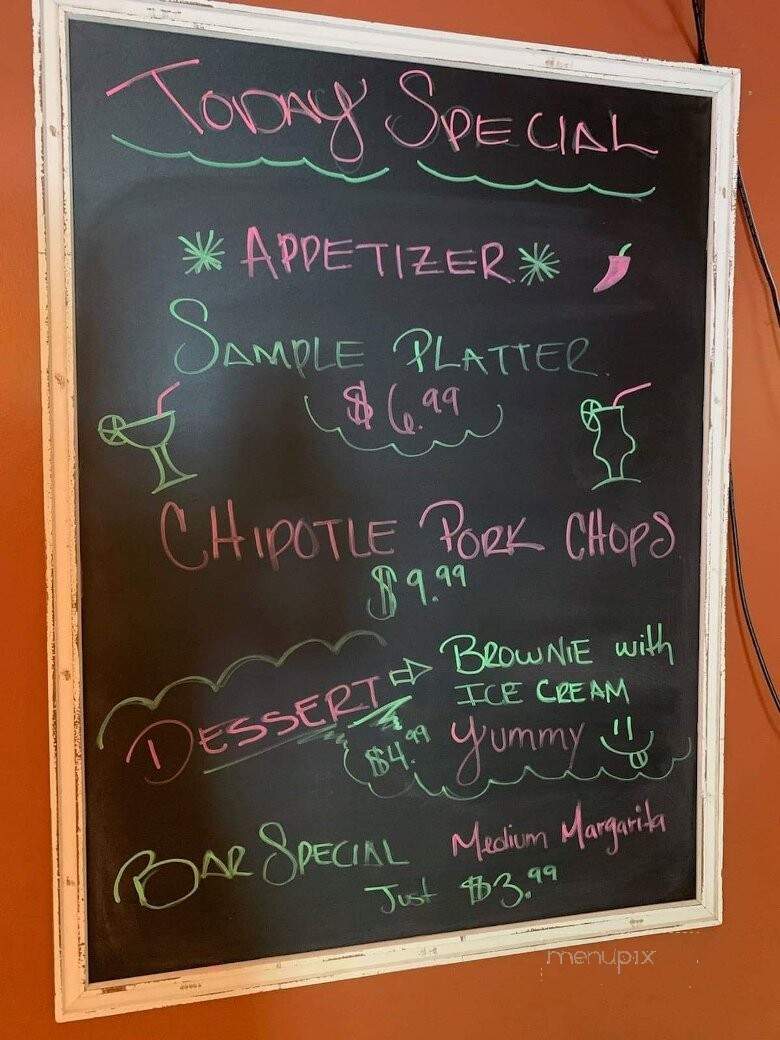 TODAY SPECIAL
APPETIZER
SAMPLE PLATTER
$6.99
CHIPOTLE PORK CHOPS
$9.99
DESSERT ⇨ BROWNIE with
ICE CREAM
$4.99 Yummy
BAR SPECIAL Medium Margarita
Just $3.99
menupix